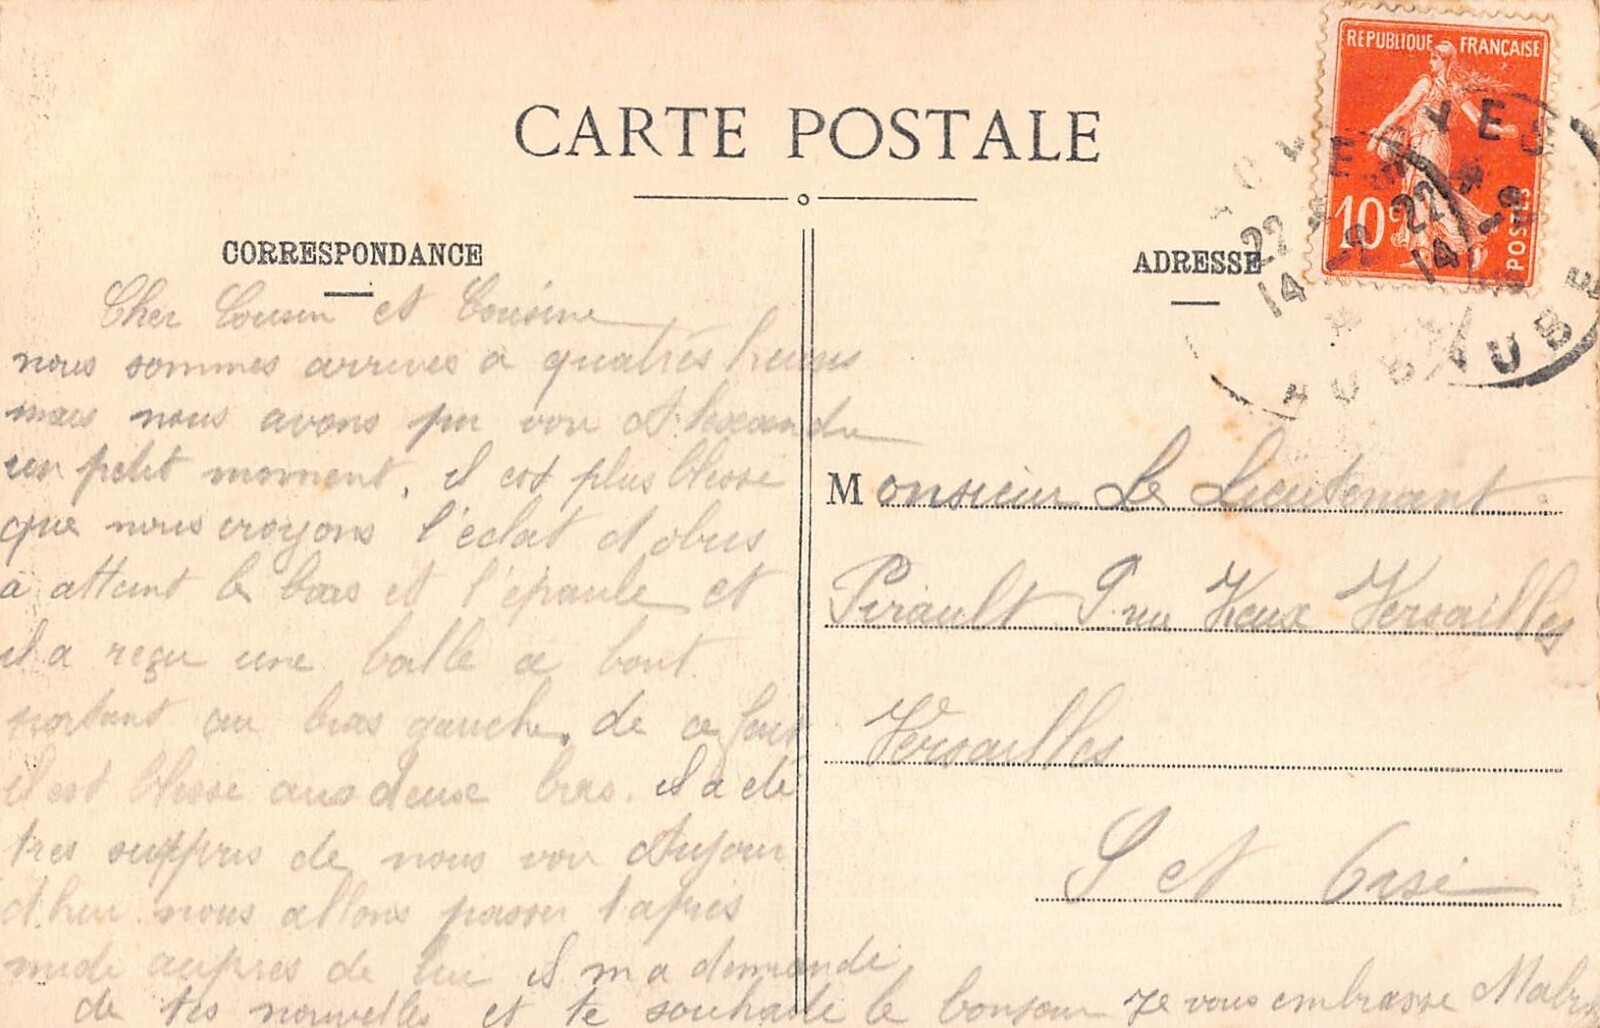 CARTE POSTALE
REPUBLIQUE FRANÇAISE
10c
POSTES
22 - 2
14
22 - 2
14
AUBE
CORRESPONDANCE
Cher Cousin et Cousine
nous sommes arrives a quatres heures
mais nous avons pu voir Alexandre
un petit moment, il est plus blesse
que nous croyons l'eclat d obus
a atteint le bras et l'epaule et
il a reçu une balle a bout
portant au bras gauche, de ce fait
il est blesse aux deux bras. il a ete
tres surpris de nous voir Aujour
d hui nous allons passer l apres
midi aupres de lui il m a demande
de tes nouvelles et te souhaite le bonjour Je vous embrasse
ADRESSE
Monsieur Le Lieutenant
Pirault 9 rue Versailles
Versailles
S et Oise